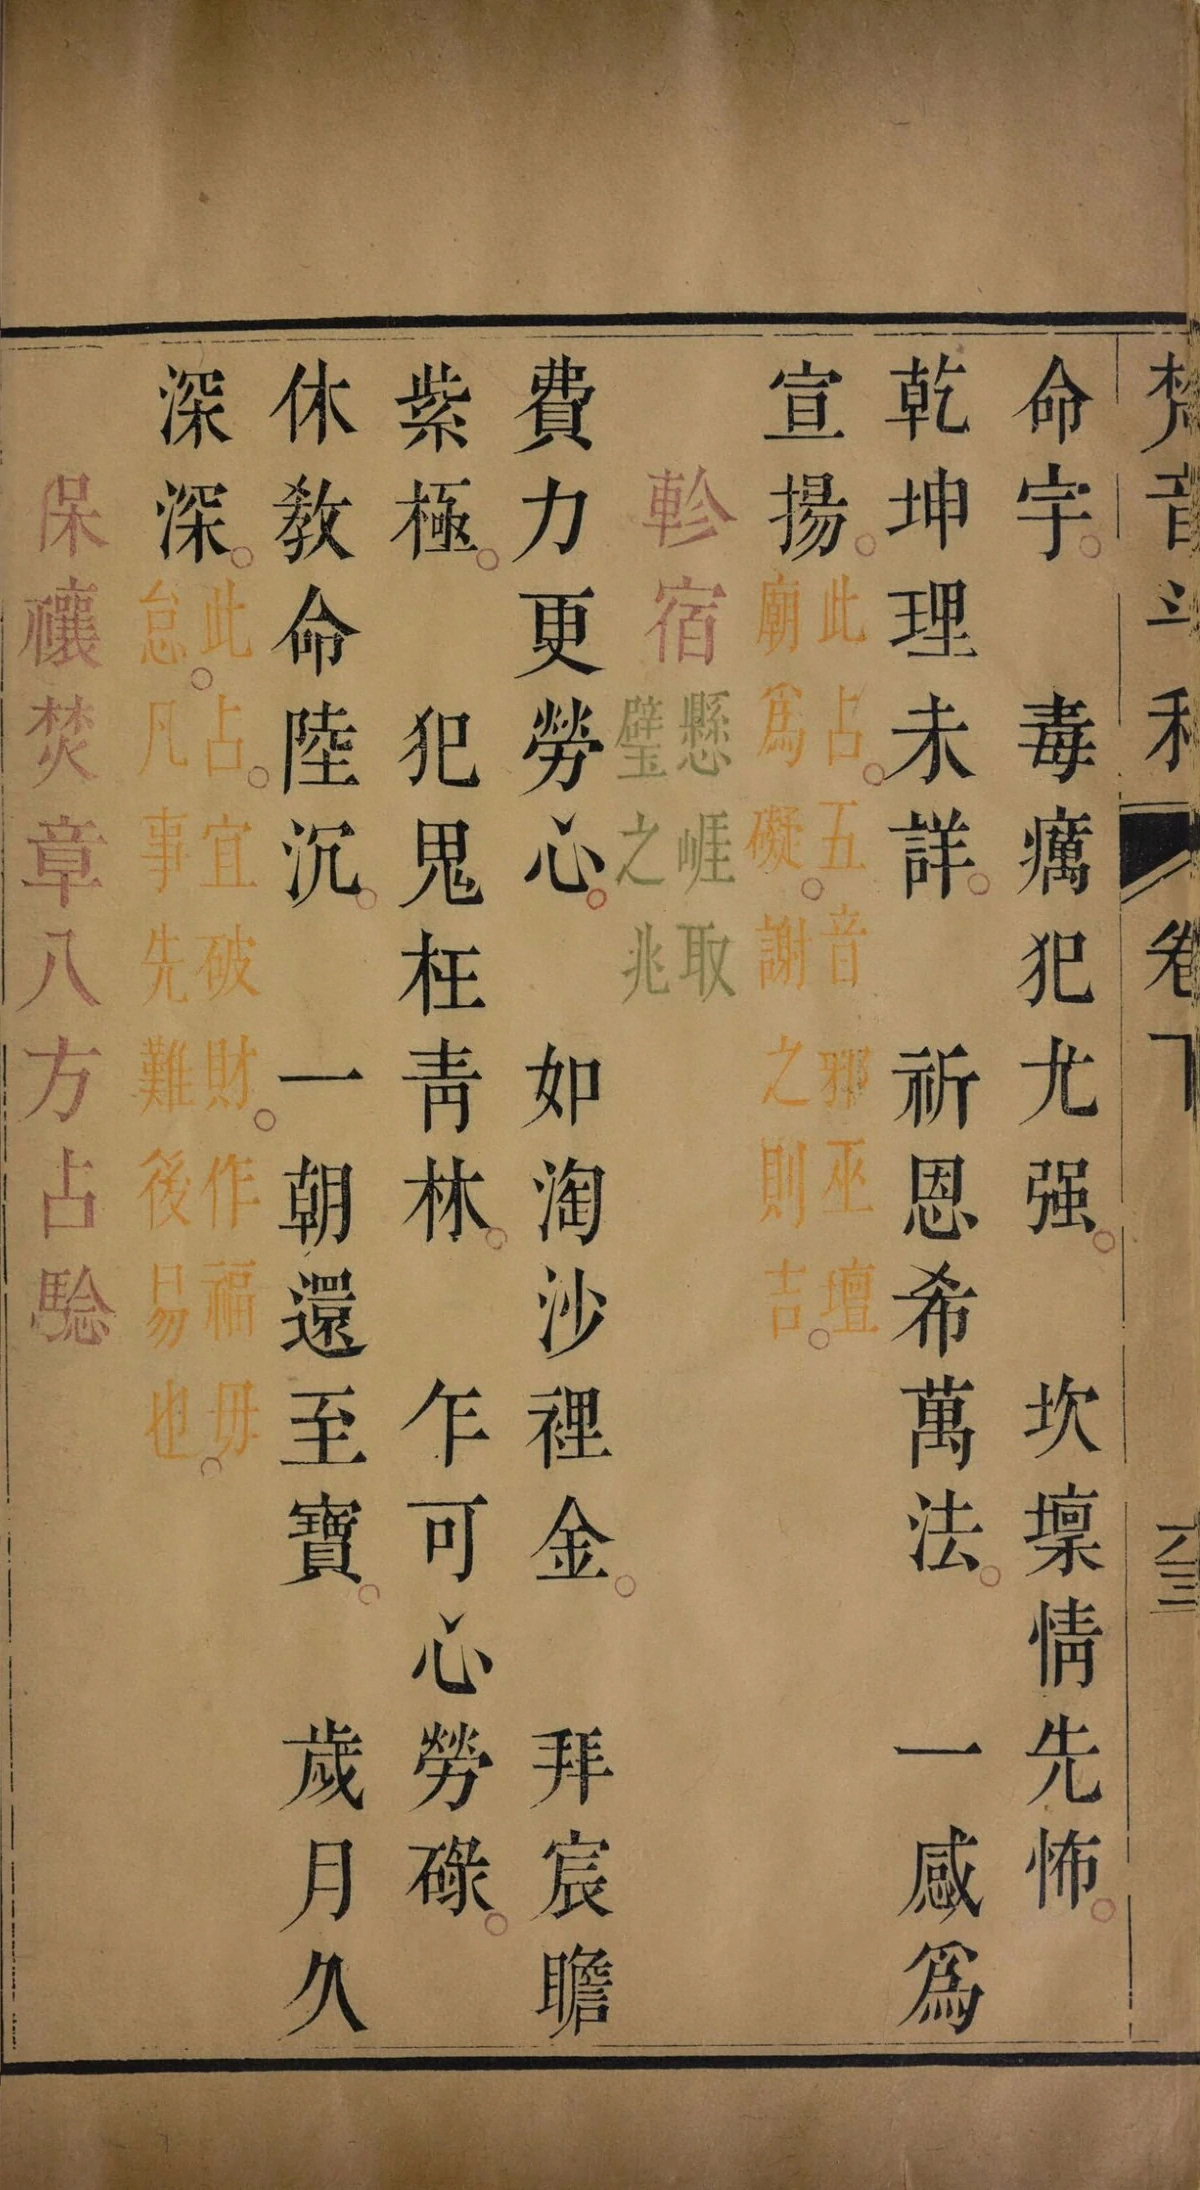 梵音斗科 卷下 六三
命宇。 毒癘犯尤强。 坎壈情先怖。
乾坤理未詳。 祈恩希萬法。 一感爲
宣揚。
此占。五音邪巫壇
廟爲礙。謝之則吉。
軫宿
懸崕取
璧之兆
費力更勞心。 如淘沙裡金。 拜宸瞻
紫極。 犯鬼枉靑林。 乍可心勞碌。
休敎命陸沉。 一朝還至寶。 歲月久
深深。
此占。宜破財。作福毋。
怠。凡事先難後易也
保禳焚章八方占騐